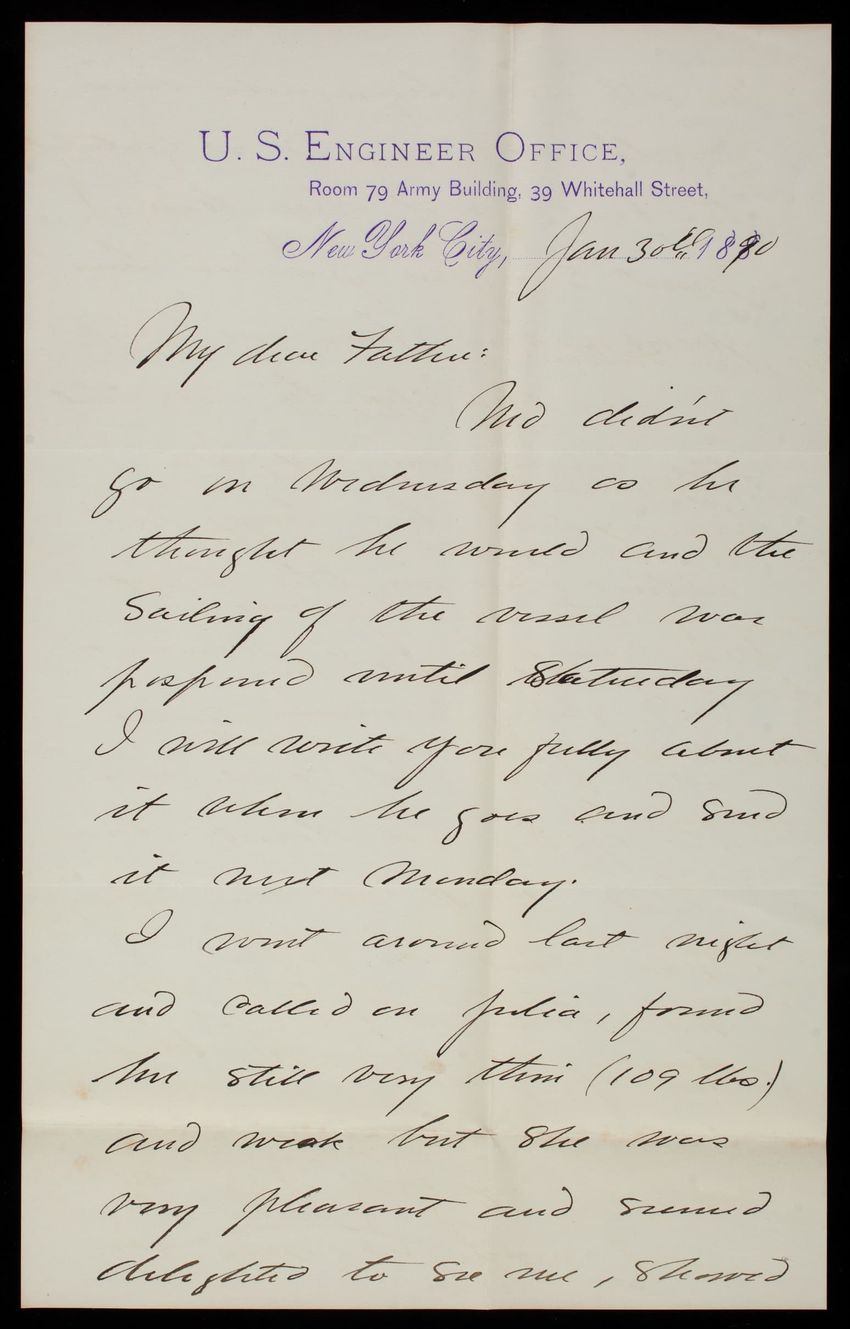 U. S. ENGINEER OFFICE,
Room 79 Army Building, 39 Whitehall Street,
New York City, Jan 30th 1890
My dear Father:
Ned didn't
go on Wednesday as he
thought he would and the
Sailing of the vessel was
posponed until Saturday
I will write you fully about
it when he goes and send
it next Monday.
I went around last night
and called on Julia, found
her still very thin (109 lbs.)
and weak but she was
very pleasant and seemed
delighted to see me, showed